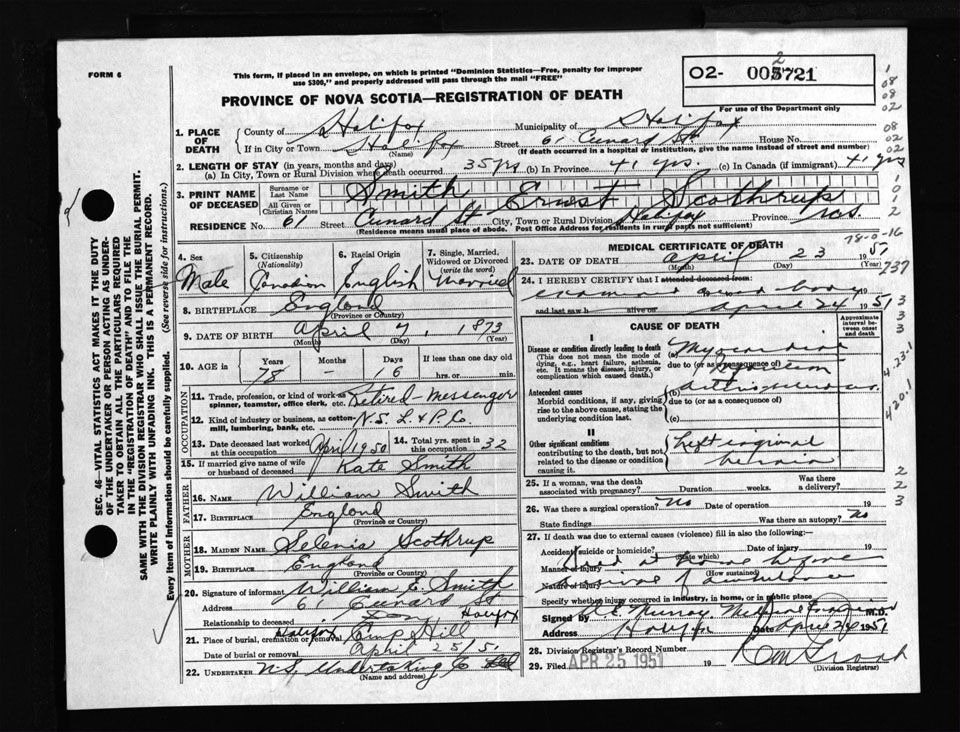 FORM 6
This form, if placed in an envelope, on which is printed "Dominion Statistics—Free, penalty for improper
use $300," and properly addressed will pass through the mail "FREE"
O2- 005721
2
For use of the Department only
PROVINCE OF NOVA SCOTIA—REGISTRATION OF DEATH
1. PLACE OF DEATH
County of Halifax Municipality of Halifax
If in City or Town Halifax Street 61 Cunard St House No.
(Name) (If death occurred in a hospital or institution, give the name instead of street and number)
2. LENGTH OF STAY (in years, months and days)
(a) In City, Town or Rural Division where death occurred 35 yrs (b) In Province 41 yrs. (c) In Canada (if immigrant) 41 yrs
3. PRINT NAME OF DECEASED
Surname or Last Name Smith
All Given or Christian Names Ernest Scothrup
RESIDENCE No. 61 Street Cunard St City, Town or Rural Division Halifax Province N.S.
(Residence means usual place of abode. Post Office Address for residents in rural parts not sufficient)
4. Sex Male
5. Citizenship (Nationality) Canadian
6. Racial Origin English
7. Single, Married, Widowed or Divorced (write the word) Married
8. BIRTHPLACE England
(Province or Country)
9. DATE OF BIRTH April 7, 1873
(Month) (Day) (Year)
10. AGE in Years 78 Months - Days 16 If less than one day old
hrs. or min.
OCCUPATION
11. Trade, profession, or kind of work as spinner, teamster, office clerk, etc. Retired-Messenger
12. Kind of industry or business, as cotton-mill, lumbering, bank, etc. N.S. L. & P. Co.
13. Date deceased last worked at this occupation April 1950
14. Total yrs. spent in this occupation 32
15. If married give name of wife or husband of deceased Kate Smith
FATHER
16. NAME William Smith
17. BIRTHPLACE England
(Province or Country)
MOTHER
18. MAIDEN NAME Selenia Scothrup
19. BIRTHPLACE England
(Province or Country)
20. Signature of informant William E. Smith
Address 61 Cunard St Halifax
Relationship to deceased Son
21. Place of burial, cremation or removal Halifax Camp Hill
Date of burial or removal April 25/51
22. UNDERTAKER N.S. Undertaking Co
(Name and address)
MEDICAL CERTIFICATE OF DEATH
78-0-16
23. DATE OF DEATH April 23 1951
(Month) (Day) (Year)
24. I HEREBY CERTIFY that I attended deceased from:
examined dead body
and last saw h alive on April 24 1951
CAUSE OF DEATH
Approximate interval between onset and death
I
Disease or condition directly leading to death (a) Myocardial
(This does not mean the mode of dying, e.g., heart failure, asthenia, etc. It means the disease, injury, or complication which caused death.)
due to (or as a consequence of)
Antecedent causes (b)
Morbid conditions, if any, giving rise to the above cause, stating the underlying condition last.
due to (or as a consequence of)
(c)
II
Other significant conditions contributing to the death, but not related to the disease or condition causing it.
Left inguinal
hernia
25. If a woman, was the death associated with pregnancy? Duration weeks. Was there a delivery?
26. Was there a surgical operation? No Date of operation 19
State findings Was there an autopsy? No
27. If death was due to external causes (violence) fill in also the following:—
Accident, suicide or homicide? Date of injury 19
(State which)
Manner of injury Died at home before
(How sustained)
Nature of injury arrival of ambulance
Specify whether injury occurred in industry, in home, or in public place
Signed by Murray Medical Examiner M.D.
Address Halifax Date April 24 1951
28. Division Registrar's Record Number
29. Filed APR 25 1951 19
(Division Registrar)
SEC. 46—VITAL STATISTICS ACT MAKES IT THE DUTY
OF THE UNDERTAKER OR PERSON ACTING AS UNDER-
TAKER TO OBTAIN ALL THE PARTICULARS REQUIRED
IN THE "REGISTRATION OF DEATH" AND TO FILE THE
SAME WITH THE DIVISION REGISTRAR WHO SHALL ISSUE THE BURIAL PERMIT.
WRITE PLAINLY WITH UNFADING INK. THIS IS A PERMANENT RECORD.
Every item of Information should be carefully supplied. (See reverse side for instructions.)
1
08
08
02
08
02
02
1
0
1
2
737
3
3
3
4-23-1
420.1
2
2
3